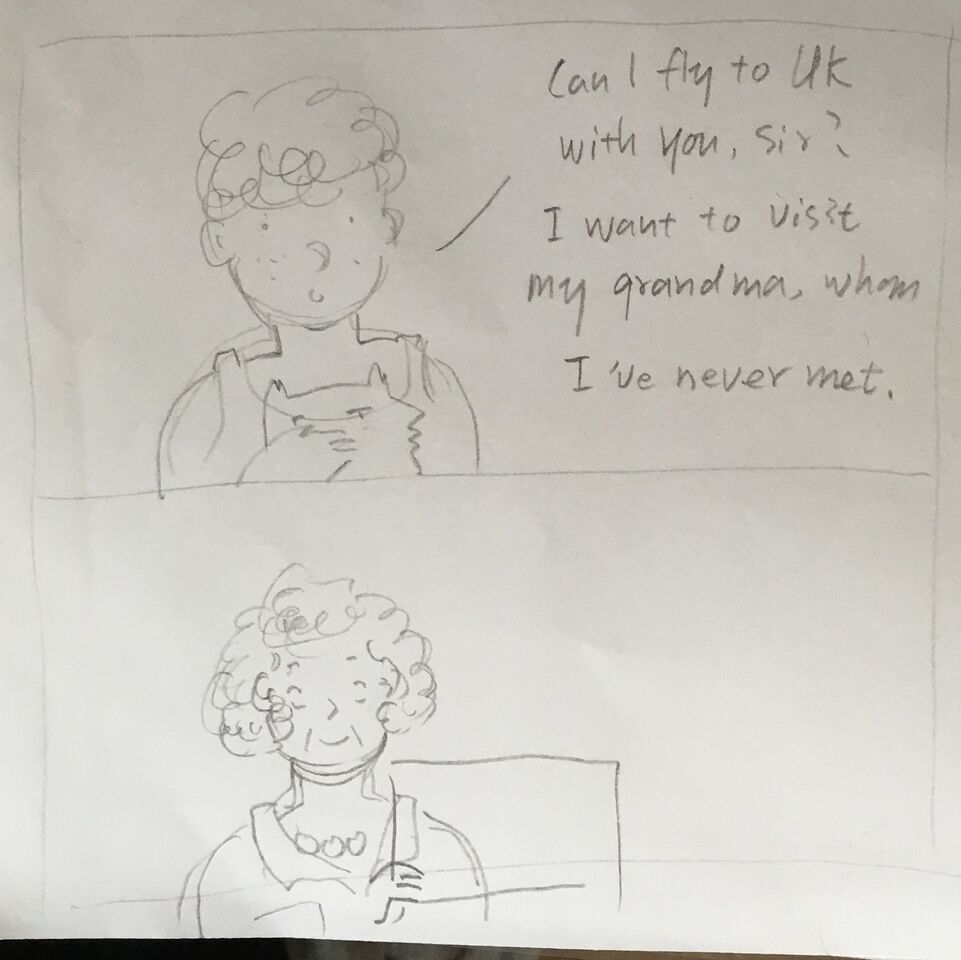 Can I fly to UK
with you, sir?
I want to visit
my grandma, whom
I've never met.